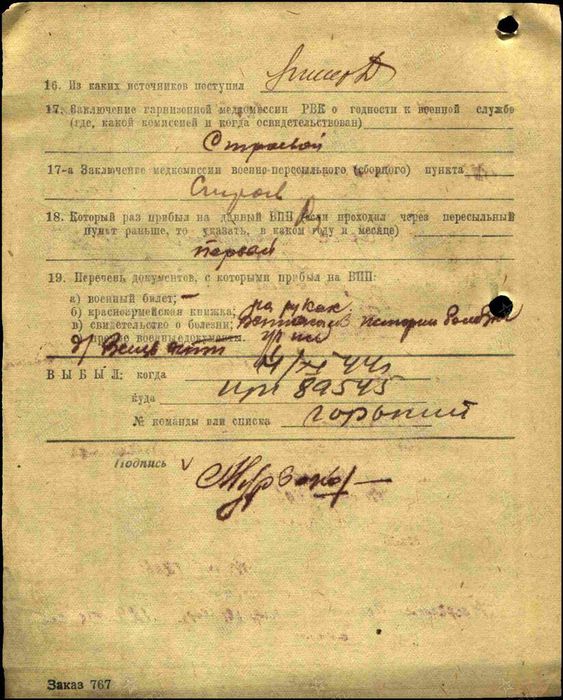 16. Из каких источников поступил
17. Заключение гарнизонной медкомиссии РВК о годности к военной службе
(где, какой комиссией и когда освидетельствован)
Строевой
17-а Заключение медкомиссии военно-пересыльного (сборного) пункта
Строев
18. Который раз прибыл на данный ВПП (если проходил через пересыльный
пункт раньше, то указать, в каком году и месяце)
первый
19. Перечень документов, с которыми прибыл на ВПП:
а) военный билет; —
б) красноармейская книжка; на руках
в) свидетельство о болезни; истории болезни
г) прочие военные документы.
ВЫБЫЛ: когда 14/XI 44г
куда 89545
№ команды или списка Горький
Подпись V
Заказ 767